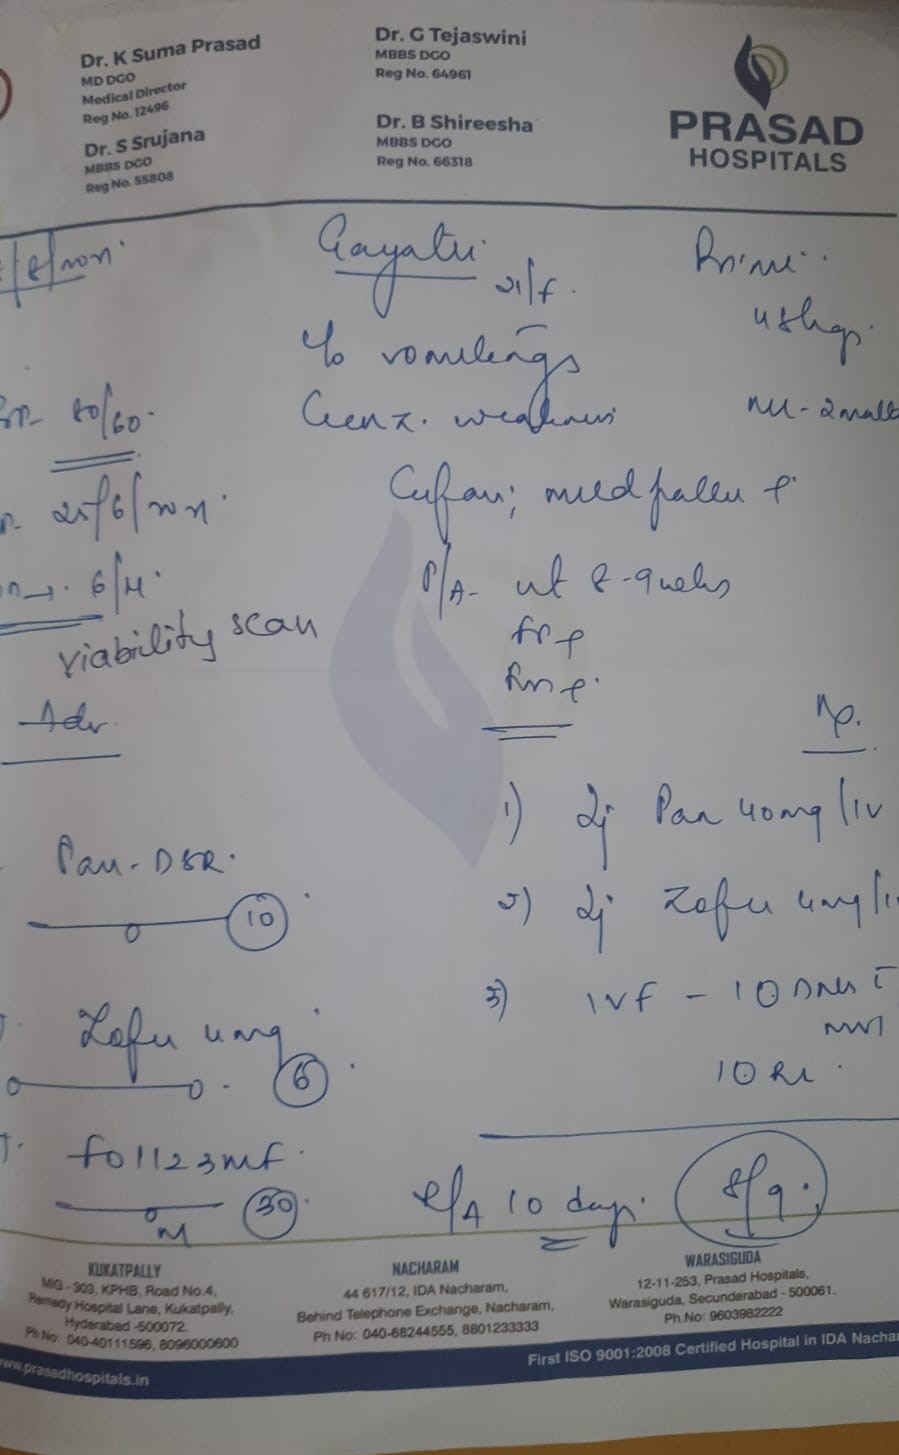 Dr. K Suma Prasad
MD DGO
Medical Director
Reg No. 12496
Dr. S Srujana
MBBS DGO
Reg No. 55808
Dr. G Tejaswini
MBBS DGO
Reg No. 64961
Dr. B Shireesha
MBBS DGO
Reg No. 66318
PRASAD
HOSPITALS
Gayatri
21/F.
Primi
c/o vomitings
Genz. weakness
80/60
Cufau; mild pallor
P/A- ut 8-9 weeks
viability scan
Adv.
Rp.
1) Inj Pan 40mg/iv
2) Inj Zofer 4mg/i
3) IVF - 10 DNS c
MVI
10 RL
Pan-DSR.
10
Zofer 4mg
6
Foll123 MF.
30
R/A 10 days.
8/9.
KUKATPALLY
MIG - 303, KPHB, Road No.4,
Remedy Hospital Lane, Kukatpally,
Hyderabad -500072.
Ph No: 040-40111596, 8096000600
NACHARAM
44 617/12, IDA Nacharam,
Behind Telephone Exchange, Nacharam,
Ph No: 040-68244555, 8801233333
WARASIGUDA
12-11-253, Prasad Hospitals,
Warasiguda, Secunderabad - 500061.
Ph.No: 9603982222
www.prasadhospitals.in
First ISO 9001:2008 Certified Hospital in IDA Nacha